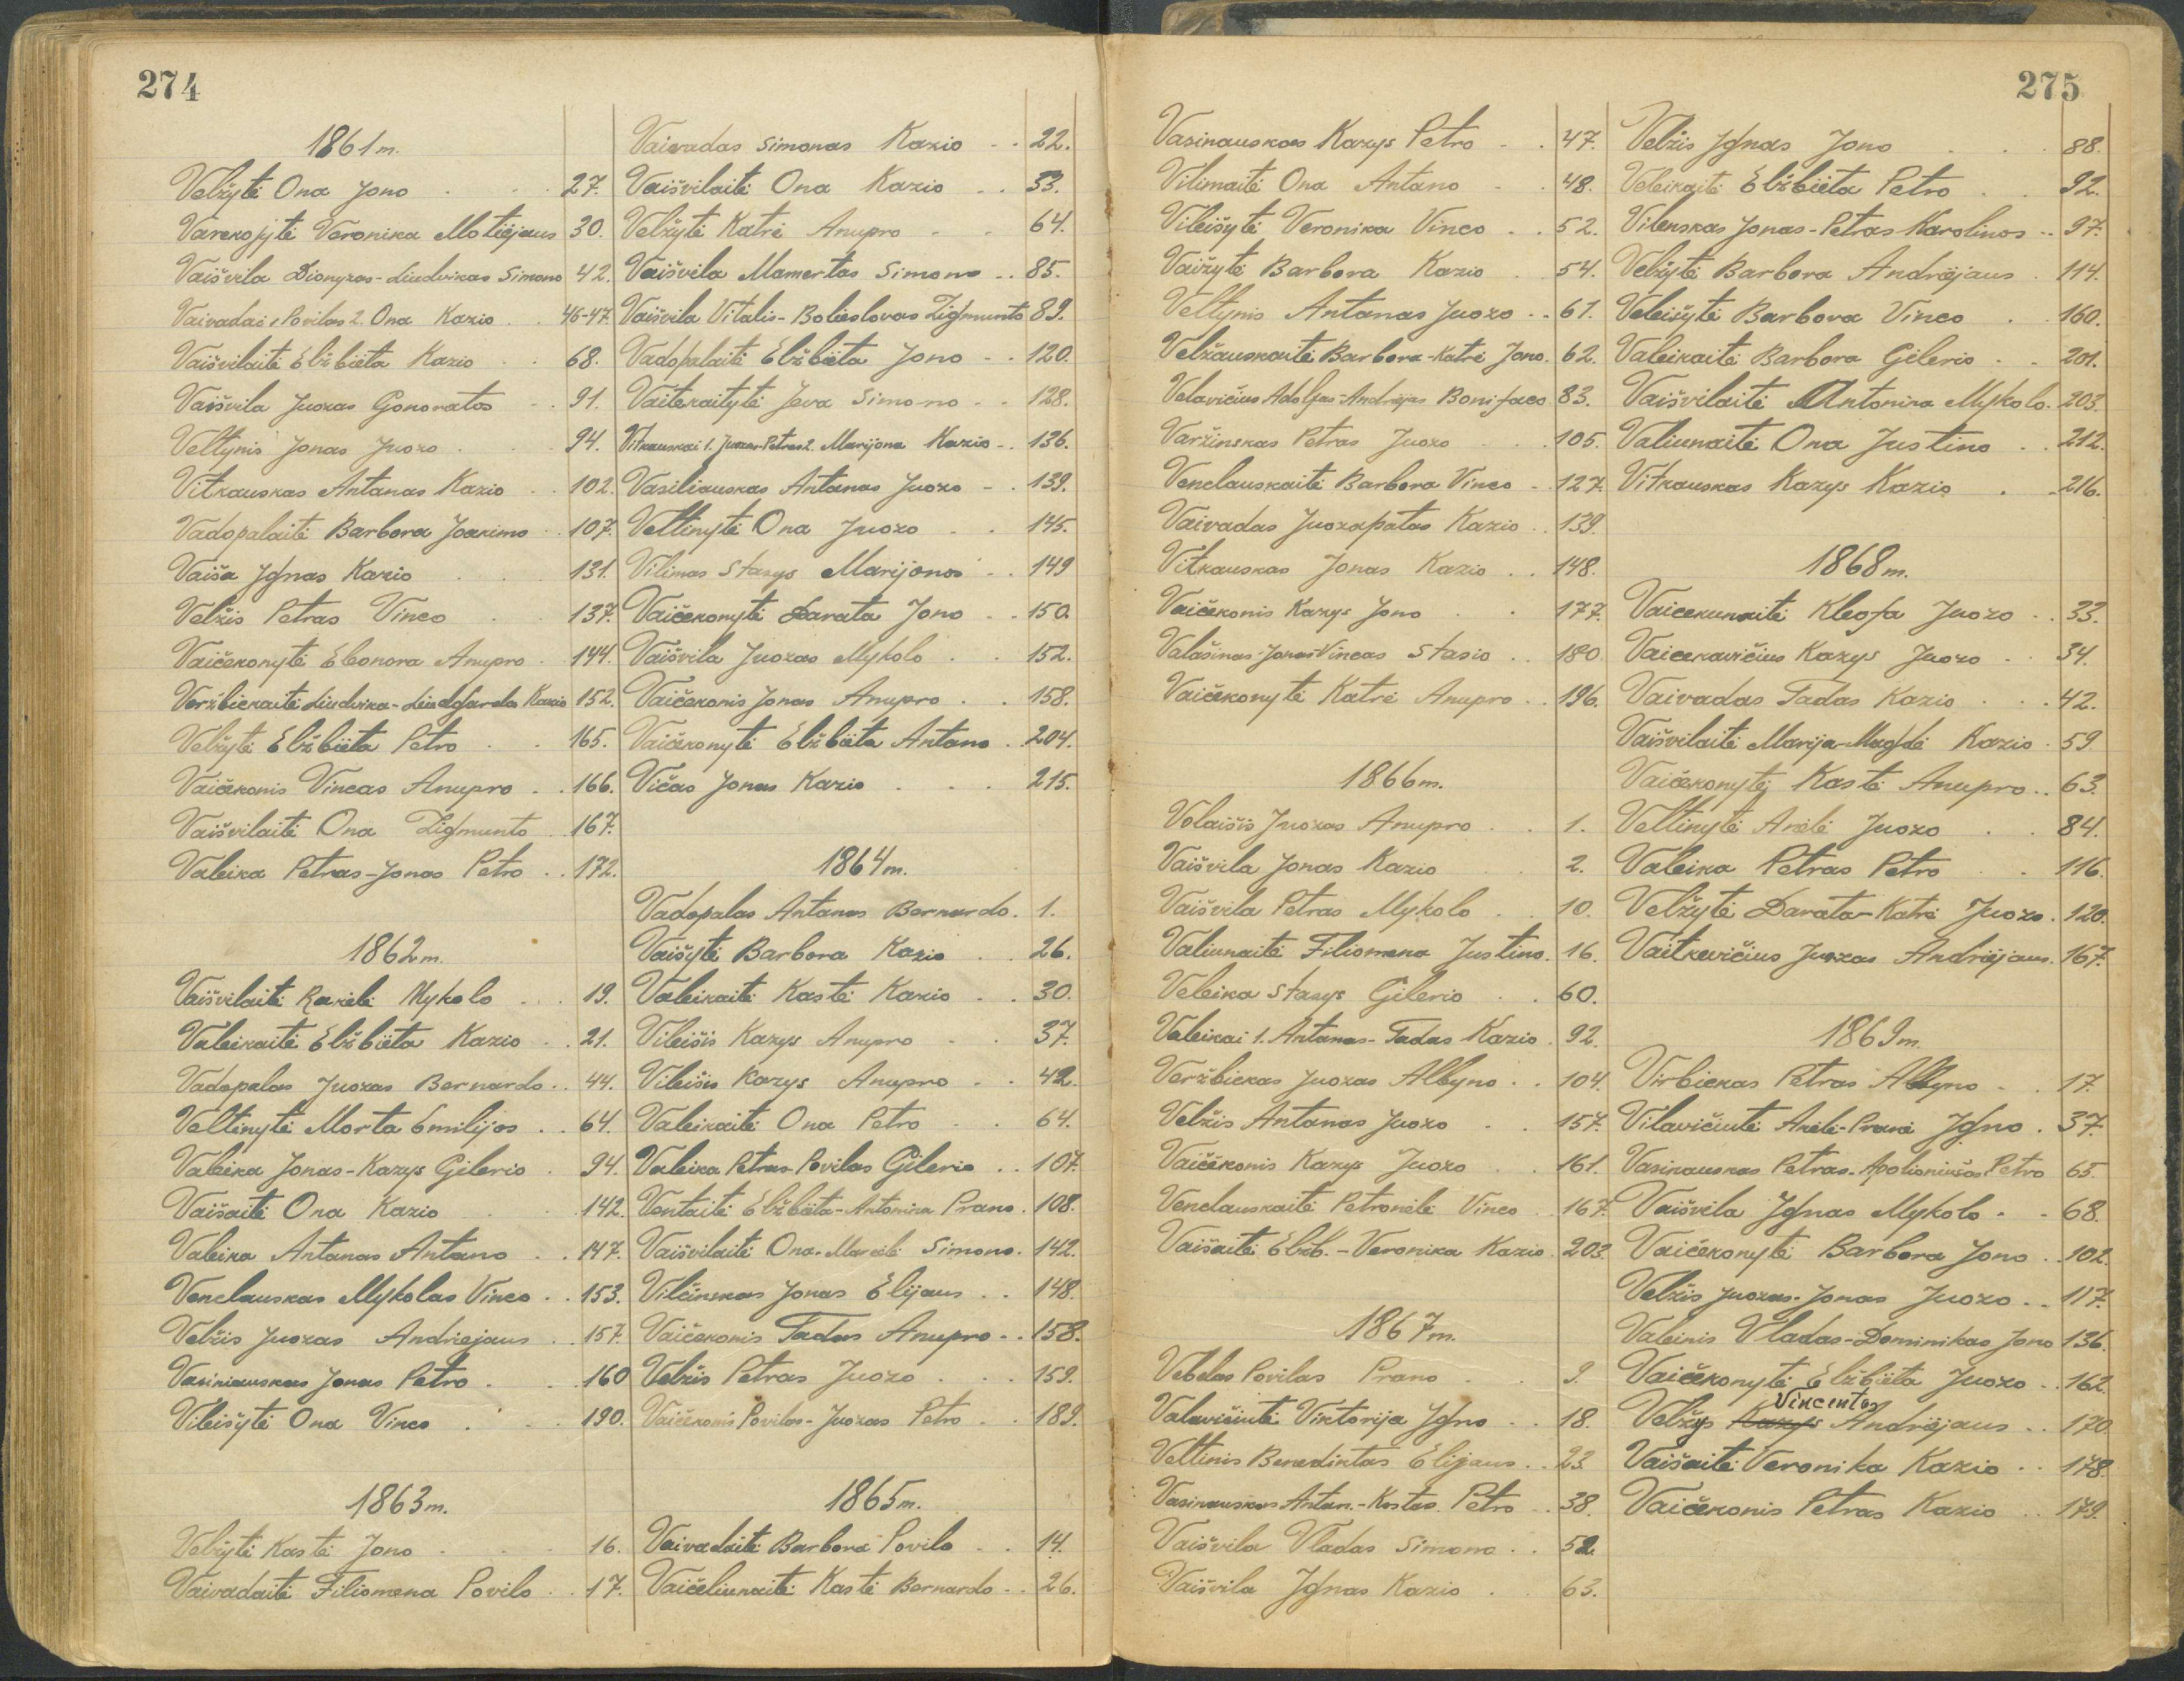 274
1861 m.
Velžytė Ona Jono . . . 27.
Varekojytė Veronika Motiejaus 30.
Vaišvila Dionyzas-Liudvikas Simono 42.
Vaivadai 1 Povilas 2. Ona Kazio . . 46-47.
Vaišvilaitė Elžbieta Kazio . . 68.
Vaišvila Juozas Gonoratos . . 91.
Veltynis Jonas Juozo . . . 94.
Vitkauskas Antanas Kazio . . 102.
Vadopalaitė Barbora Joakimo . 107.
Vaiša Ignas Kazio . . . 131.
Velžis Petras Vinco . . 137.
Vaičekonytė Eleonora Anupro . 144.
Veržbickaitė Liudvika-Liudgarda Kazio 152.
Velžytė Elžbieta Petro . . 165.
Vaičekonis Vincas Anupro . . 166.
Vaišvilaitė Ona Zigmunto . 167.
Valeika Petras-Jonas Petro . . 172.
1862 m.
Vaišvilaitė Rakėlė Mykolo . . . 19.
Valeikaitė Elžbieta Kazio . . 21.
Vadopalas Juozas Bernardo . . 44.
Veltinytė Morta Emilijos . . 64.
Valeika Jonas-Kazys Gilerio . 94.
Vaišaitė Ona Kazio . . . 142.
Valeika Antanas Antano . . 147.
Venclauskas Mykolas Vinco . . 153.
Velžis Juozas Andriejaus . . 157.
Vasiniauskas Jonas Petro . . 160
Vileišytė Ona Vinco . . . 190.
1863 m.
Velžytė Kastė Jono . . . 16.
Vaivadaitė Filiomena Povilo . . 17.
Vaivadas Simonas Kazio . . 22.
Vaišvilaitė Ona Kazio . . 33.
Velžytė Katrė Anupro . . 64.
Vaišvila Mamertas Simono . . 85.
Vaišvila Vitalis-Boleslovas Zigmunto 89.
Vadopalaitė Elžbieta Jono . . 120.
Vaitekaitytė Jeva Simono . . 128.
Vitkauskai 1. Juozas-Petras 2. Marijona Kazio . . 136.
Vasiliauskas Antanas Juozo . . 139.
Veltinytė Ona Juozo . . 145.
Vilimas Stasys Marijonos . . 149
Vaičekonytė Darata Jono . . 150.
Vaišvila Juozas Mykolo . . 152.
Vaičekonis Jonas Anupro . . 158.
Vaičekonytė Elžbieta Antano . 204.
Vičas Jonas Kazio . . . 215.
1864 m.
Vadopalas Antanas Bernardo . 1.
Vaišytė Barbora Kazio . . 26.
Valeikaitė Kastė Kazio . . 30.
Vileišis Kazys Anupro . . 37.
Vileišis Kazys Anupro . . 42.
Valeikaitė Ona Petro . . 64.
Valeika Petras-Povilas Gilerio . . 107.
Ventaitė Elžbieta-Antonina Prano . 108.
Vaišvilaitė Ona-Marcelė Simono . 142.
Vilčinskas Jonas Elijaus . . 148.
Vaičekonis Tadas Anupro . . 158.
Velžis Petras Juozo . . . 159.
Vaičekonis Povilas-Juozas Petro . . 189.
1865 m.
Vaivadaitė Barbora Povilo . . 14.
Vaičeliunaitė Kastė Bernardo . . 26.
275
Vasinauskas Kazys Petro . . 47.
Vilimaitė Ona Antano . . 48.
Vileišytė Veronika Vinco . . 52.
Vaižytė Barbora Kazio . . 54.
Veltynis Antanas Juozo . . 61.
Velžauskaitė Barbora-Katrė Jono. 62.
Velavičius Adolfas-Andrejas Bonifaco 83.
Varžinskas Petras Juozo . . 105.
Venclauskaitė Barbora Vinco . 127.
Vaivadas Juozapatas Kazio . . 139.
Vitkauskas Jonas Kazio . . 148.
Vaičekonis Kazys Jono . . 177.
Valašinas-Jonas Vincas Stasio . . 180.
Vaičekonytė Katrė Anupro . . 196.
1866 m.
Volaišis Juozas Anupro . . 1.
Vaišvila Jonas Kazio . . 2.
Vaišvila Petras Mykolo . . 10.
Valiunaitė Filiomena Justino. 16.
Veleika Stasys Gilerio . . 60.
Valeikai 1. Antanas-Tadas Kazio . 92.
Veržbickas Juozas Albyno . . 104.
Velžis Antanas Juozo . . 157.
Vaičekonis Kazys Juozo . . 161.
Venclauskaitė Petronėlė Vinco . 167.
Vaišaitė Elzb.-Veronika Kazio . 203.
1867 m.
Vebelas Povilas Prano . . 9.
Valavičiutė Viktorija Igno . . 18.
Veltinis Benediktas Elijaus . . 23.
Vasinauskas Antan.-Kostas. Petro . . 38.
Vaišvila Vladas Simono . . 52.
Vaišvila Ignas Kazio . . 63.
Velžis Ignas Jono . . . 88.
Veleikaitė Elžbieta Petro . . 92.
Vilenskas Jonas-Petras Karolinos . . 97.
Velžytė Barbora Andriejaus . 114.
Veleišytė Barbora Vinco . . 160.
Valeikaitė Barbora Gilerio . . 201.
Vaišvilaitė Antonina Mykolo. 203.
Valiunaitė Ona Justino . . 212.
Vitkauskas Kazys Kazio . . 216.
1868 m.
Vaicekunaitė Kleofa Juozo . . 33.
Vaicekavičius Kazys Juozo . 34.
Vaivadas Tadas Kazio . . . 42.
Vaišvilaitė Marija-Magdė Kazio . 59.
Vaičekonytė Kastė Anupro . . 63.
Veltinytė Anėlė Juozo . . 84.
Valeika Petras Petro . . 116.
Velžytė Darata-Katrė Juozo . 120.
Vaitkevičius Juozas Andriejaus. 167.
1869 m.
Virbickas Petras Albyno . . 17.
Vilavičiutė Anėlė-Pranė Igno . 37.
Vasinauskas Petras-Apolioniušas Petro 65.
Vaišvila Ignas Mykolo . . 68.
Vaičekonytė Barbora Jono . 102.
Velžis Juozas-Jonas Juozo . . 117.
Valeinis Vladas-Dominikas Jono 136.
Vaičekonytė Elžbieta Juozo . . 162.
Vincentas
Velžys Kazys Andriejaus . . 170.
Vaišaitė Veronika Kazio . . 178.
Vaičekonis Petras Kazio . . 179.